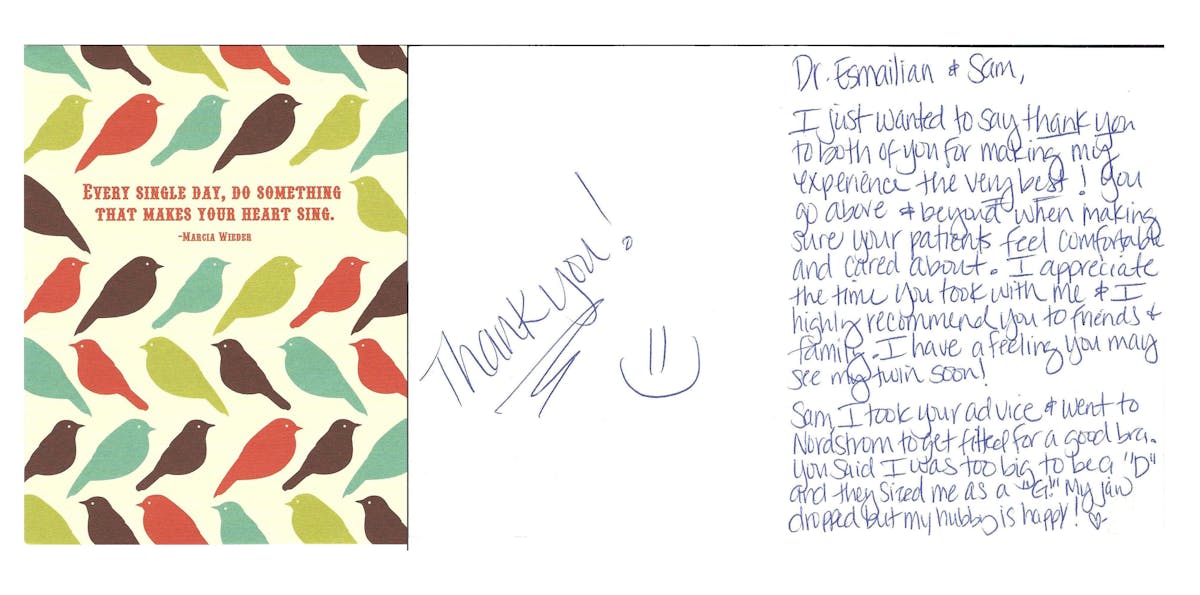 EVERY SINGLE DAY, DO SOMETHING
THAT MAKES YOUR HEART SING.
-MARCIA WIEDER
Thank you!
Dr. Esmailian & Sam,
I just wanted to say thank you
to both of you for making my
experience the very best! You
go above & beyond when making
sure your patients feel comfortable
and cared about. I appreciate
the time you took with me & I
highly recommend you to friends &
family. I have a feeling you may
see my twin soon!
Sam, I took your advice & went to
Nordstrom to get fitted for a good bra.
You said I was too big to be a "D"
and they sized me as a "G!" My jaw
dropped but my hubby is happy!